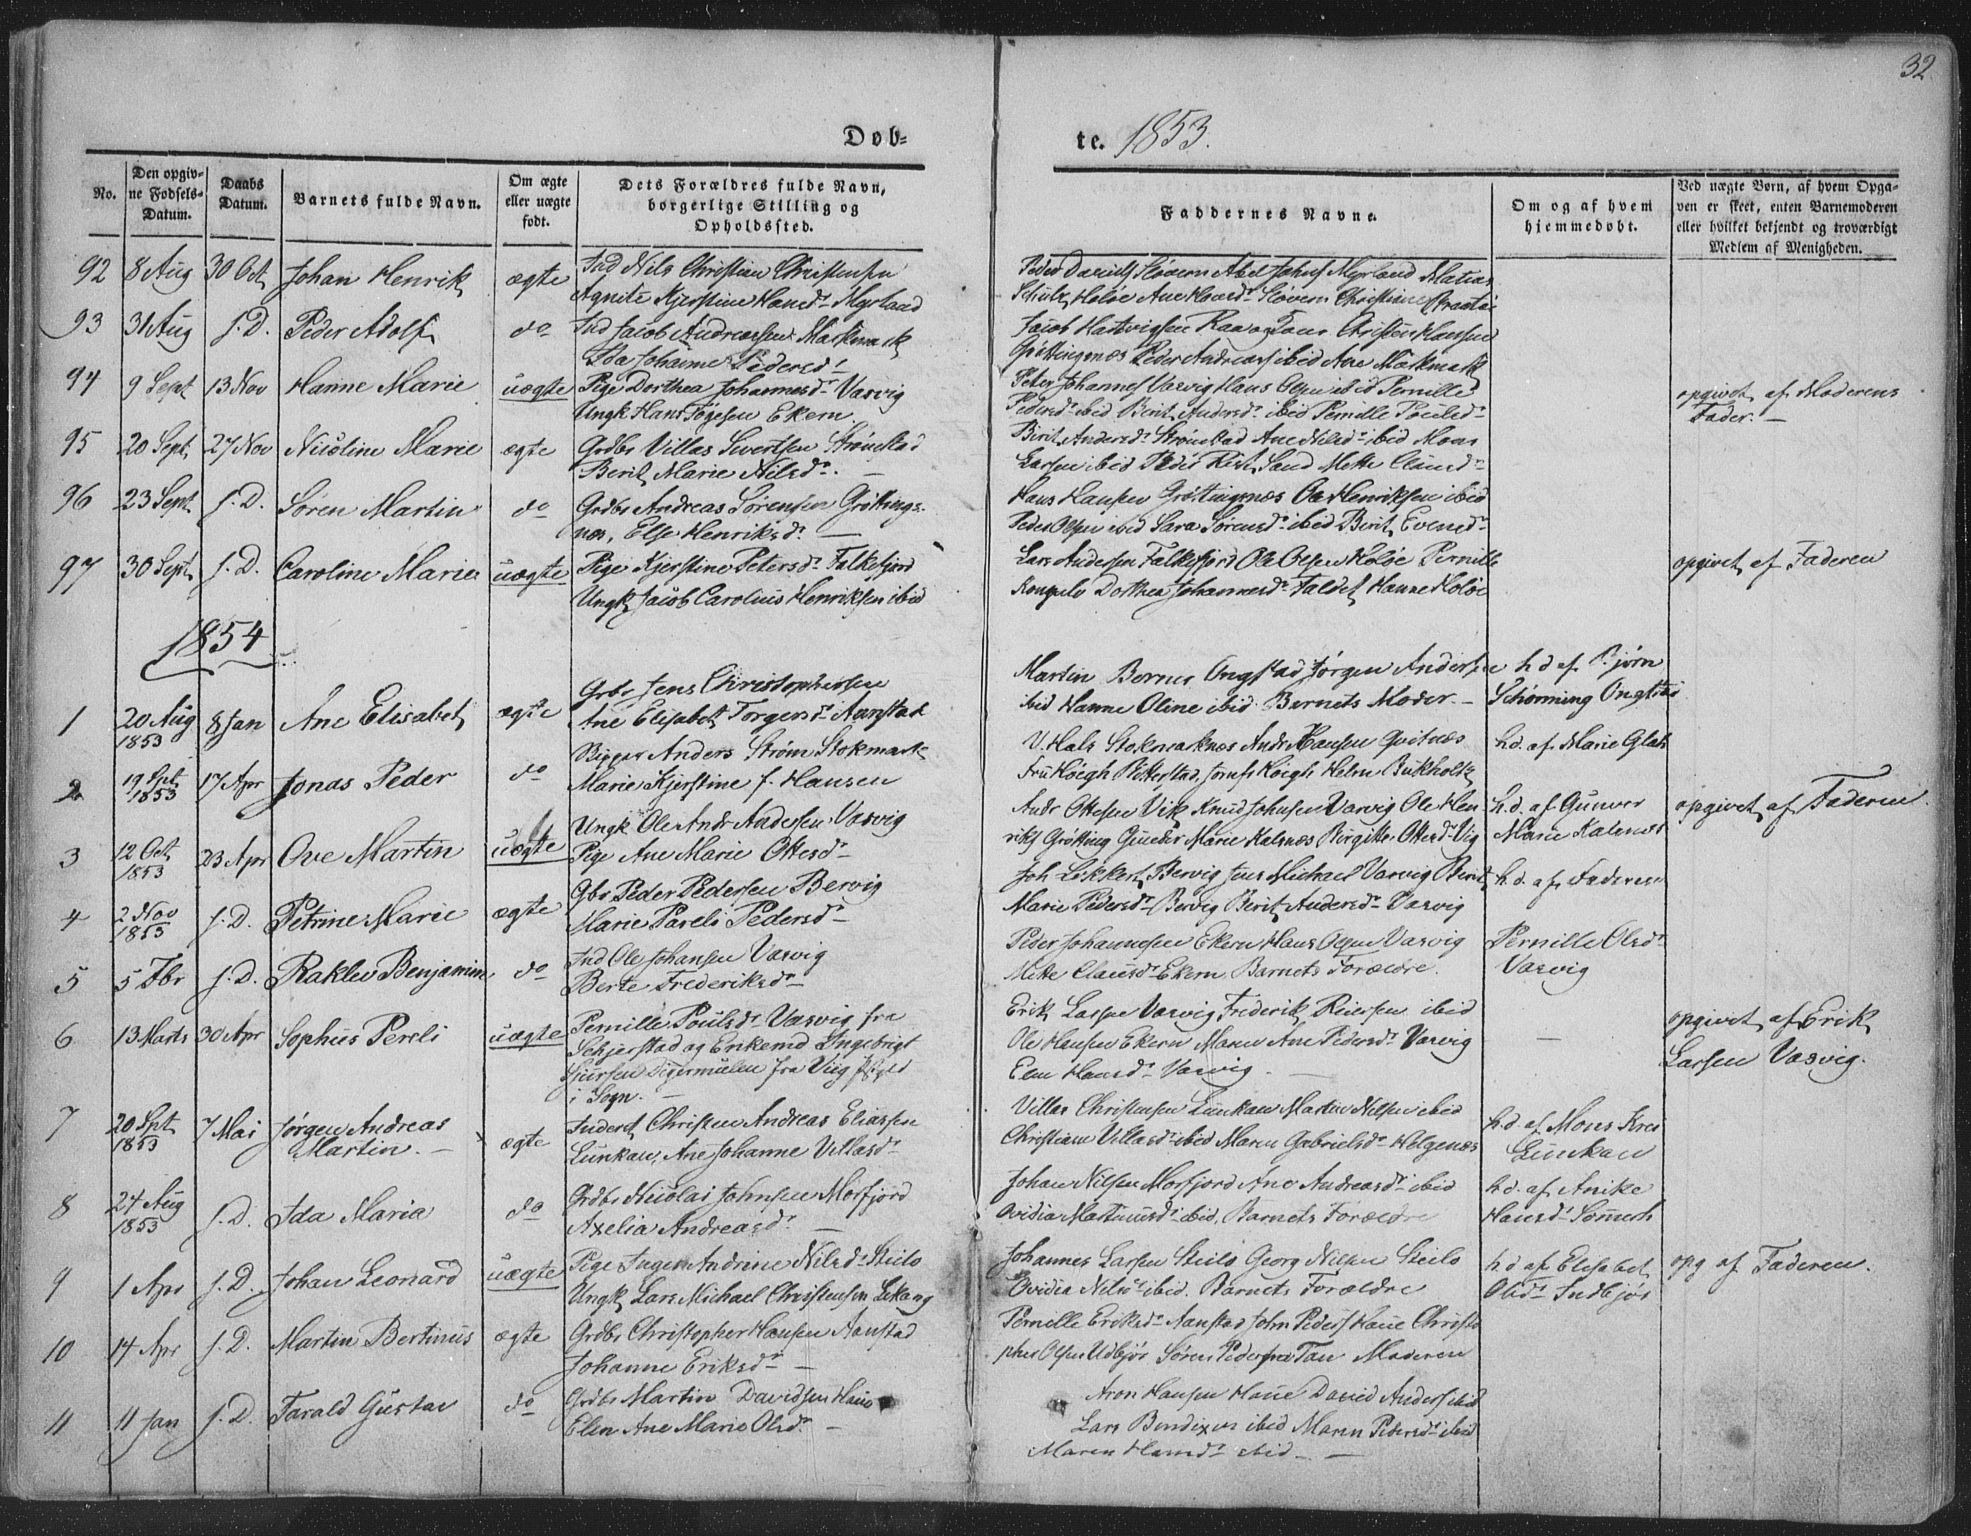 32
Døb-
te. 1853.
No.
Den opgiv-
ne Fødsels-
Datum.
Daabs
Datum.
Barnets fulde Navn.
Om ægte
eller uægte
født.
Dets Forældres fulde Navn,
borgerlige Stilling og
Opholdssted.
Faddernes Navne.
Om og af hvem
hjemmedøbt.
Ved uægte Børn, af hvem Opga-
ven er skeet, enten Barnemoderen
eller hvilket bekjendt og troværdigt
Medlem af Menigheden.
92 8 Aug 30 Oct Johan Henrik ægte
Ind Nils Christian Christensen
Agnite Kjerstine Hansd. Myrland
Peder Daniels Sløvern Abel Johns Myrland Matias
Schulz Holøe Ane Hansd. Sløvern Christiane
93 31 Aug s. D. Peder Adolf do
Ind Jacob Andreassen Markmark
Ida Johanne Pedersd.
Jacob Hartvigsen Christen Hansen
Grøttingsnæs Peder Andreass ibid Ane Markmark
94 9 Sept 13 Nov Hanne Marie uægte
Pige Dorthea Johannesd. Varvig
Ungk Hans Ekern
Peter Johannes Varvig Hans Olsen ibid Pernille
Pedersd. ibid Berit Andersd. ibid Pernille Poulsd.
opgivet af Moderens
Fader. —
95 20 Sept. 27 Nov Nicoline Marie ægte
Grdbr Villas Sivertsen Strønstad
Berit Marie Nilsd. —
Berit Andersd. Strønstad Ane Nilsd. ibid Mons
Larsen ibid Peder Rist Sand Mette Clausd.
96 23 Sept. s. D. Søren Martin do
Grdbr Andreas Sørensen Grøttings-
næs, Else Henriksd. —
Hans Hansen Grøttingsnæs Ole Henriksen ibid
Peder Olsen ibid Sara Sørensd. ibid Berit Evensd.
97 30 Sept. s. D. Caroline Marie uægte
Pige Kjerstine Petersd. Falkefjord
Ungk Jacob Carolius Henriksen ibid
Lars Andersen Falkefjord Ole Olsen Holøe Pernille
Dorthea Johannesd. Faldet Hanne Holøe
opgivet af Faderen
1854
1 20 Aug 1853 8 Jan Ane Elisabet ægte
Grbr Jens Christophersen
Ane Elisabet Torgersd. Aanstad
Martin Bernes Ongstad Jørgen Andersen
ibid Hanne Oline ibid Barnets Moder. —
h. d. af Bjørn
Schønning Ongstad
2 19 Spt 1853 17 Apr Jonas Peder do
Anders Strøm Stokmark
Marie Kjerstine f. Hansen
V. Hals Stokmarknæs Andr Hansen Qvitnæs
Fru Høegh Høegh Helm Bukholtz
h. d. af Marie Glad
3 12 Oct 1853 23 Apr Ove Martin uægte
Ungk Ole Andr Andersen Varvig
Pige Ane Marie Ottesd.
Andr Ottesen Vik Knud Johnsen Varvig Ole Hen
riks Grøtting Gunder Marie Kalsnæs Birgitte Ottesd. Vig
h. d. af Gunver
Marie Kalsnæs
opgivet af Faderen.
4 2 Nov 1853 s. D. Petrine Marie ægte
Gbr Peder Pedersen Bervig
Marie Pareli Pedersd. —
Joh Lekkert Bervig Jens Michael Varvig Berit
Marie Pedersd. Bervig Berit Andersd. Varvig
h. d. af Faderen
5 5 Fbr s. D. Raklev Benjamin do
Ind Ole Johansen Varvig
Berte Frederiksd. —
Peder Johannesen Ekern Hans Olsen Varvig
Mette Clausd. Ekern Barnets Forældre.
Pernille Olsd.
Varvig
6 13 Marts 30 Apr Sophus Pereli uægte
Pernille Poulsd. Varvig fra
Schjerstad og Enkemd Ingebrigt
Sjursen Digermulen fra Viig
i Sogn. —
Erik Larsen Varvig Frederik Reiersen ibid
Ole Hansen Ekern Maren Ane Pedersd. Varvig
Elen Hansd. Varvig. —
—
opgivet af Erik
Larsen Varvig.
7 20 Spt 1853 7 Mai Jørgen Andreas
Martin. — ægte
Inderst Christen Andreas Eliassen
Lunkan, Ane Johanne Villasd.
Villas Christensen Lunkan Martin Nilsen ibid
Christiane Villasd. ibid Maren Gabrielsd. Helgenæs
h. d. af Mons
Lunkan
8 24 Aug 1853 s. D. Ida Maria do
Grdbr Nicolai Johnsen Morfjord
Axelia Andreasd. —
Johan Nilsen Morfjord Ane Andreasd. ibid
Ovidia Martinusd. ibid, Barnets Forældre
h. d. af Anike
Hansd.
9 1 Apr s. D. Johan Leonard uægte
Pige Inger Andrine Nilsd. Steilo
Ungk Lars Michael Christensen Lekang
Johannes Larsen Steilo Georg Nilsen Steilo
Ovidia Nilsd. ibid. Barnets Forældre
h. d. af Elisabet
Olsd. Indbjør
opg af Faderen.
10 14 Apr s. D. Martin Bertinus ægte
Grdbr Christopher Hansen Aanstad
Johanne Eriksd. —
Pernille Eriksd. Aanstad John Peders Haue Christo
pher Olsen Udbjør Søren Peders fra Tan Moderen
11 11 Jan s. D. Tarald Gustav do
Grdbr Martin Davidsen Haue
Elen Ane Marie Olsd. —
Aron Hansen Haue David Anders ibid
Lars Bendixen ibid Maren Pedersd. ibid
Maren Hansd. ibid —